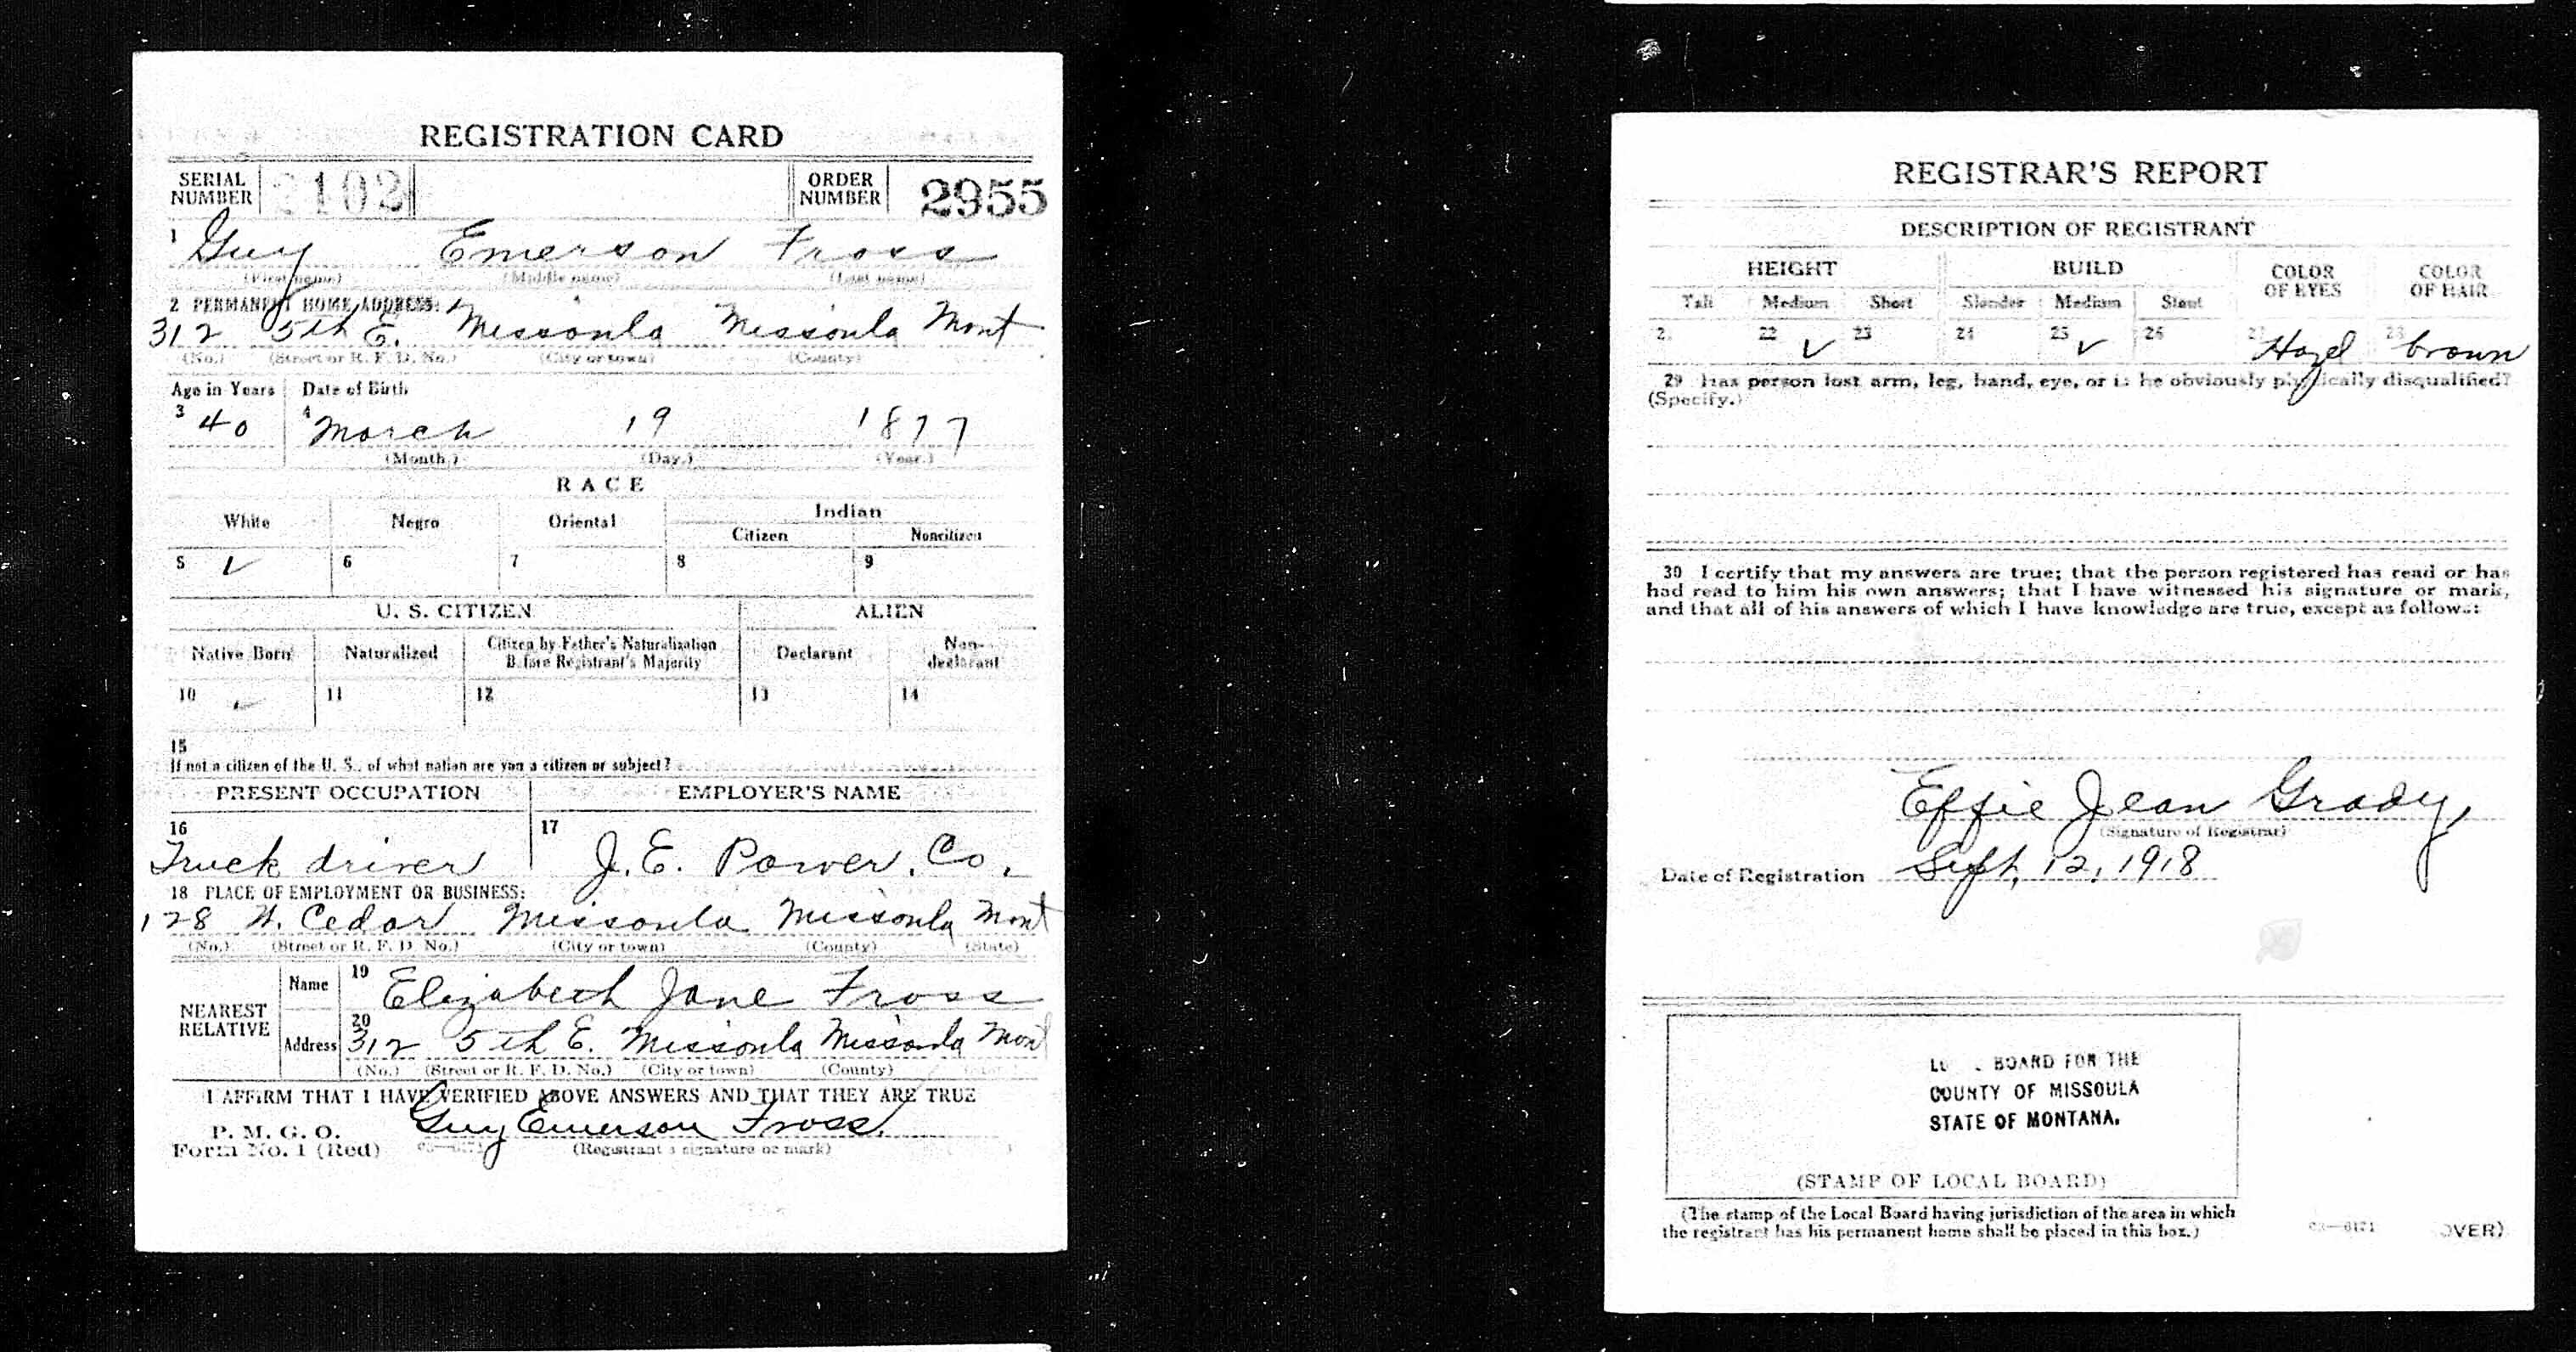 REGISTRATION CARD
SERIAL NUMBER 2102 ORDER NUMBER 2955
1 Guy Emerson Fross
(First name) (Middle name) (Last name)
2 PERMANENT HOME ADDRESS:
312 5th E. Missoula Missoula Mont
(No.) (Street or R. F. D. No.) (City or town) (County)
Age in Years Date of Birth
3 40 4 March 19 1877
(Month.) (Day.) (Year.)
RACE
White Negro Oriental Indian
Citizen Noncitizen
5 ✓ 6 7 8 9
U. S. CITIZEN ALIEN
Native Born Naturalized Citizen by Father's Naturalization Before Registrant's Majority Declarant Non-declarant
10 ✓ 11 12 13 14
15
If not a citizen of the U. S., of what nation are you a citizen or subject?
PRESENT OCCUPATION EMPLOYER'S NAME
16 Truck driver 17 J. E. Power. Co.
18 PLACE OF EMPLOYMENT OR BUSINESS:
128 W. Cedar Missoula Missoula Mont
(No.) (Street or R. F. D. No.) (City or town) (County) (State)
NEAREST RELATIVE Name 19 Elizabeth Jane Fross
Address 20 312 5th E. Missoula Missoula Mont
(No.) (Street or R. F. D. No.) (City or town) (County)
I AFFIRM THAT I HAVE VERIFIED ABOVE ANSWERS AND THAT THEY ARE TRUE
P. M. G. O.
Form No. 1 (Red) Guy Emerson Fross.
(Registrant's signature or mark)
REGISTRAR'S REPORT
DESCRIPTION OF REGISTRANT
HEIGHT BUILD COLOR OF EYES COLOR OF HAIR
Tall Medium Short Slender Medium Stout
21 22 ✓ 23 24 25 ✓ 26 27 Hazel 28 brown
29 Has person lost arm, leg, hand, eye, or is he obviously physically disqualified?
(Specify.)
30 I certify that my answers are true; that the person registered has read or has
had read to him his own answers; that I have witnessed his signature or mark,
and that all of his answers of which I have knowledge are true, except as follows:
Effie Jean Grady,
(Signature of Registrar)
Date of Registration Sept. 12, 1918
BOARD FOR THE
COUNTY OF MISSOULA
STATE OF MONTANA.
(STAMP OF LOCAL BOARD)
(The stamp of the Local Board having jurisdiction of the area in which
the registrant has his permanent home shall be placed in this box.)
03—6171 OVER)